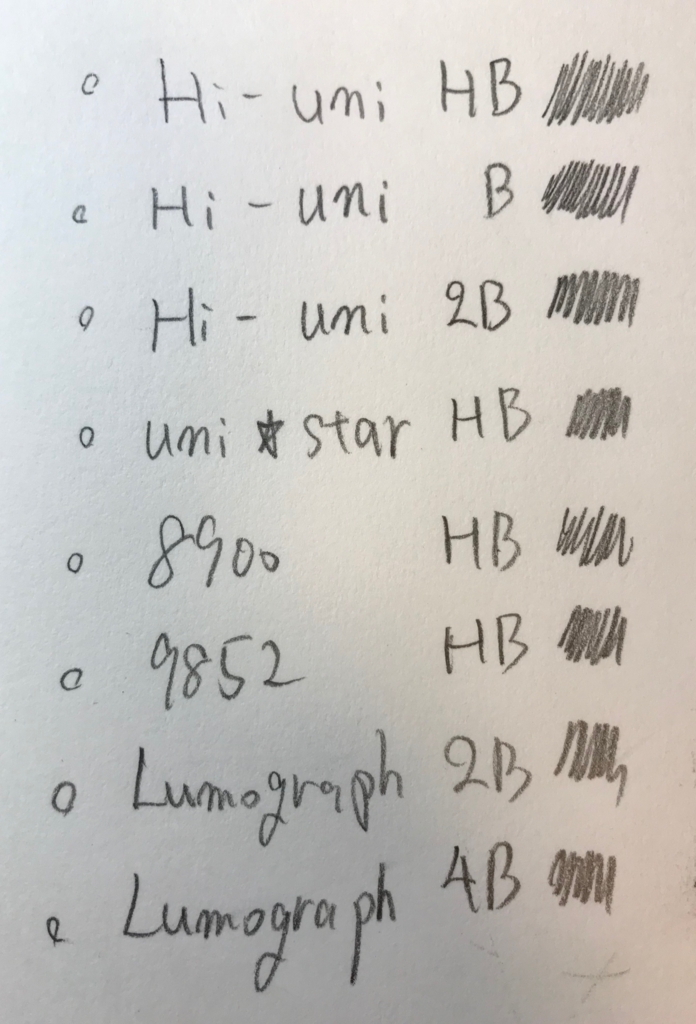 ◦ Hi-uni HB
◦ Hi-uni B
◦ Hi-uni 2B
◦ uni★star HB
◦ 8900 HB
◦ 9852 HB
◦ Lumograph 2B
◦ Lumograph 4B